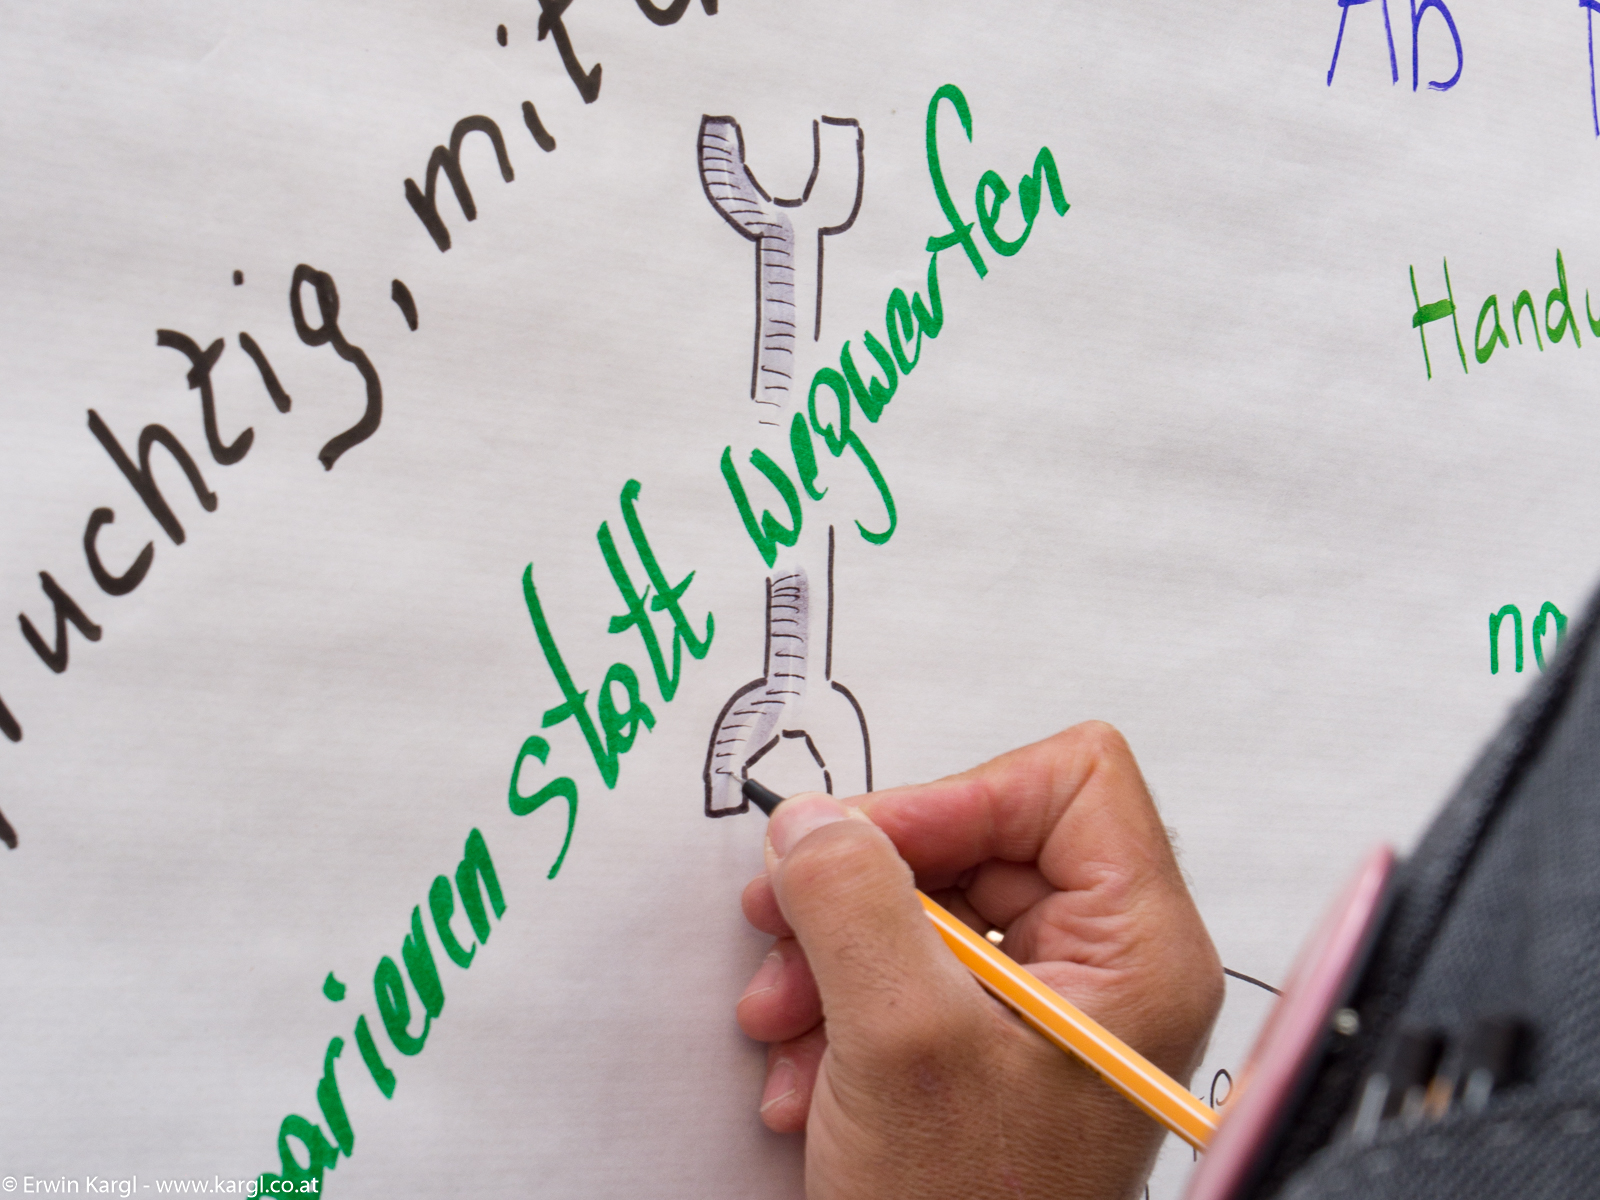 uchtig, mit
arieren statt wegwerfen
Ab
Hand
no
© Erwin Kargl - www.kargl.co.at